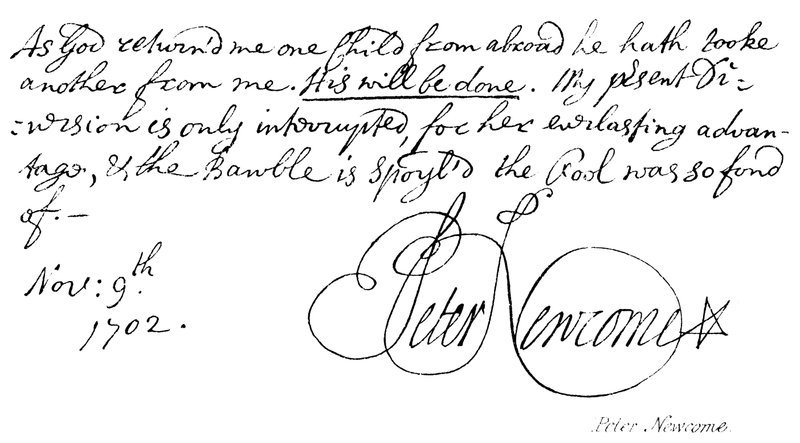 As God return'd me one Child from abroad he hath tooke
another from me. His will be done. My p̃sent Di=
=version is only interrupted, for her everlasting advan-
tage, & the Bawble is spoyl'd the Fool was so fond
of. —
Nov: 9th.
1702.
Peter Newcome
Peter Newcome.